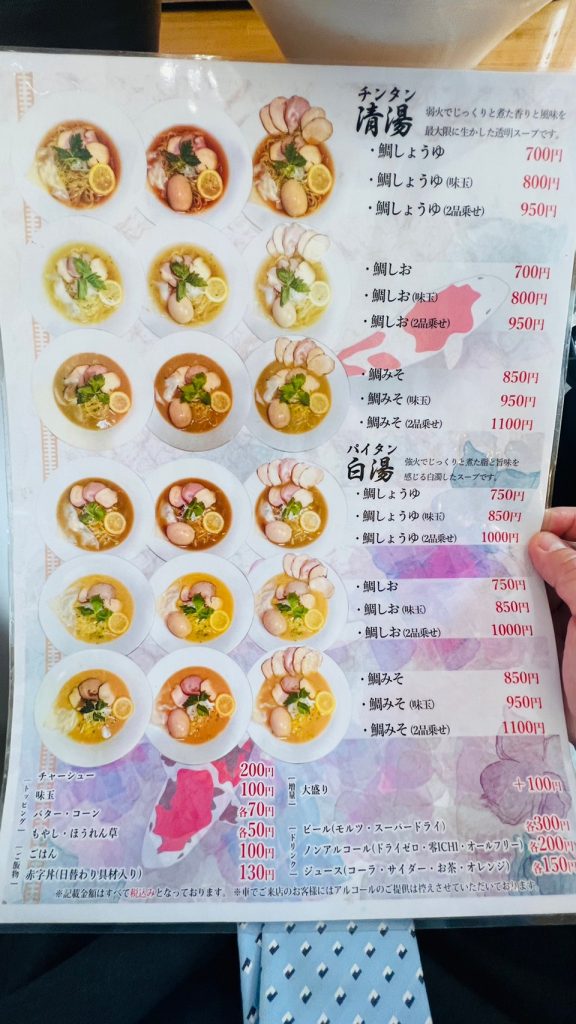 チンタン
清湯
弱火でじっくりと煮た香りと風味を
最大限に生かした透明スープです。
・鯛しょうゆ 700円
・鯛しょうゆ(味玉) 800円
・鯛しょうゆ(2品乗せ) 950円
・鯛しお 700円
・鯛しお(味玉) 800円
・鯛しお(2品乗せ) 950円
・鯛みそ 850円
・鯛みそ(味玉) 950円
・鯛みそ(2品乗せ) 1100円
パイタン
白湯
強火でじっくりと煮た脂と旨味を
感じる白濁したスープです。
・鯛しょうゆ 750円
・鯛しょうゆ(味玉) 850円
・鯛しょうゆ(2品乗せ) 1000円
・鯛しお 750円
・鯛しお(味玉) 850円
・鯛しお(2品乗せ) 1000円
・鯛みそ 850円
・鯛みそ(味玉) 950円
・鯛みそ(2品乗せ) 1100円
[トッピング]
チャーシュー 200円
味玉 100円
バター・コーン 各70円
もやし・ほうれん草 各50円
[ご飯物]
ごはん 100円
赤字丼(日替わり具材入り) 130円
[増量]
大盛り +100円
[ドリンク]
ビール(モルツ・スーパードライ) 各300円
ノンアルコール(ドライゼロ・零ICHI・オールフリー) 各200円
ジュース(コーラ・サイダー・お茶・オレンジ) 各150円
※記載金額はすべて税込みとなっております。 ※車でご来店のお客様にはアルコールのご提供は控えさせていただいております。